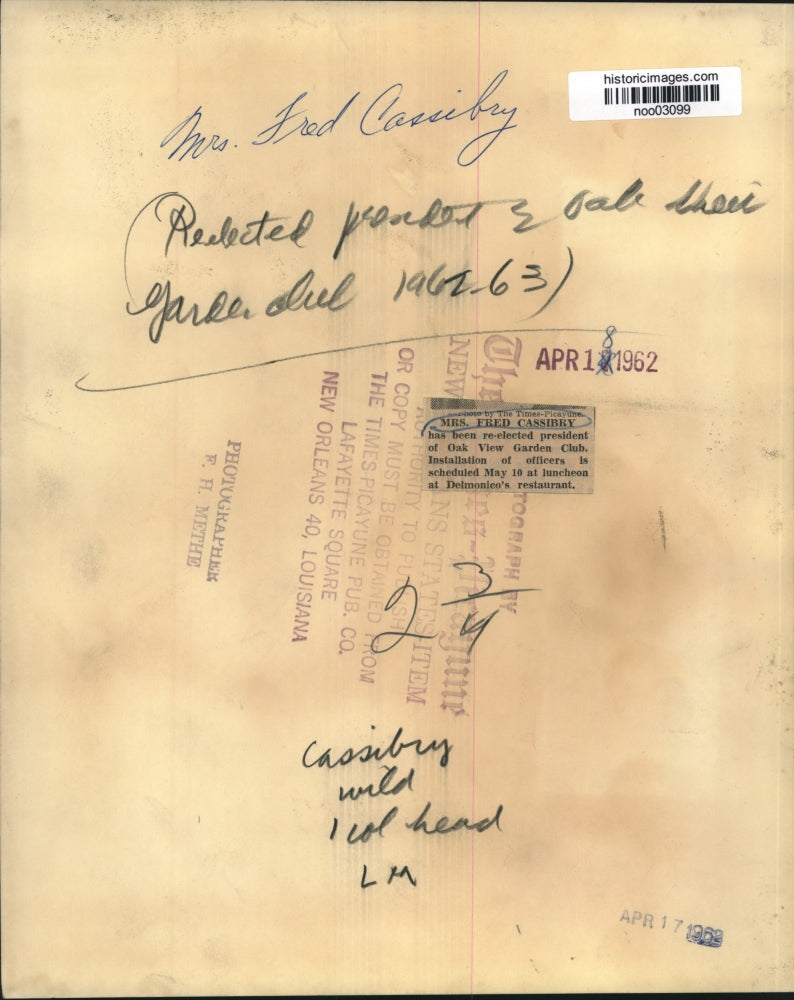 historicimages.com
noo03099
Mrs. Fred Cassibry
(Reelected presndet & oak their
Garden club 1962-63)
APR 18 1962
The Times-Picayune
NEW ORLEANS STATES-ITEM
AUTHORITY TO PUBLISH
OR COPY MUST BE OBTAINED FROM
THE TIMES-PICAYUNE PUB. CO.
LAFAYETTE SQUARE
NEW ORLEANS 40, LOUISIANA
Photo by The Times-Picayune.
MRS. FRED CASSIBRY
has been re-elected president
of Oak View Garden Club.
Installation of officers is
scheduled May 10 at luncheon
at Delmonico's restaurant.
PHOTOGRAPHER
F. H. METHE
2 3/4
Cassibry
wild
1 col head
LM
APR 17 1962